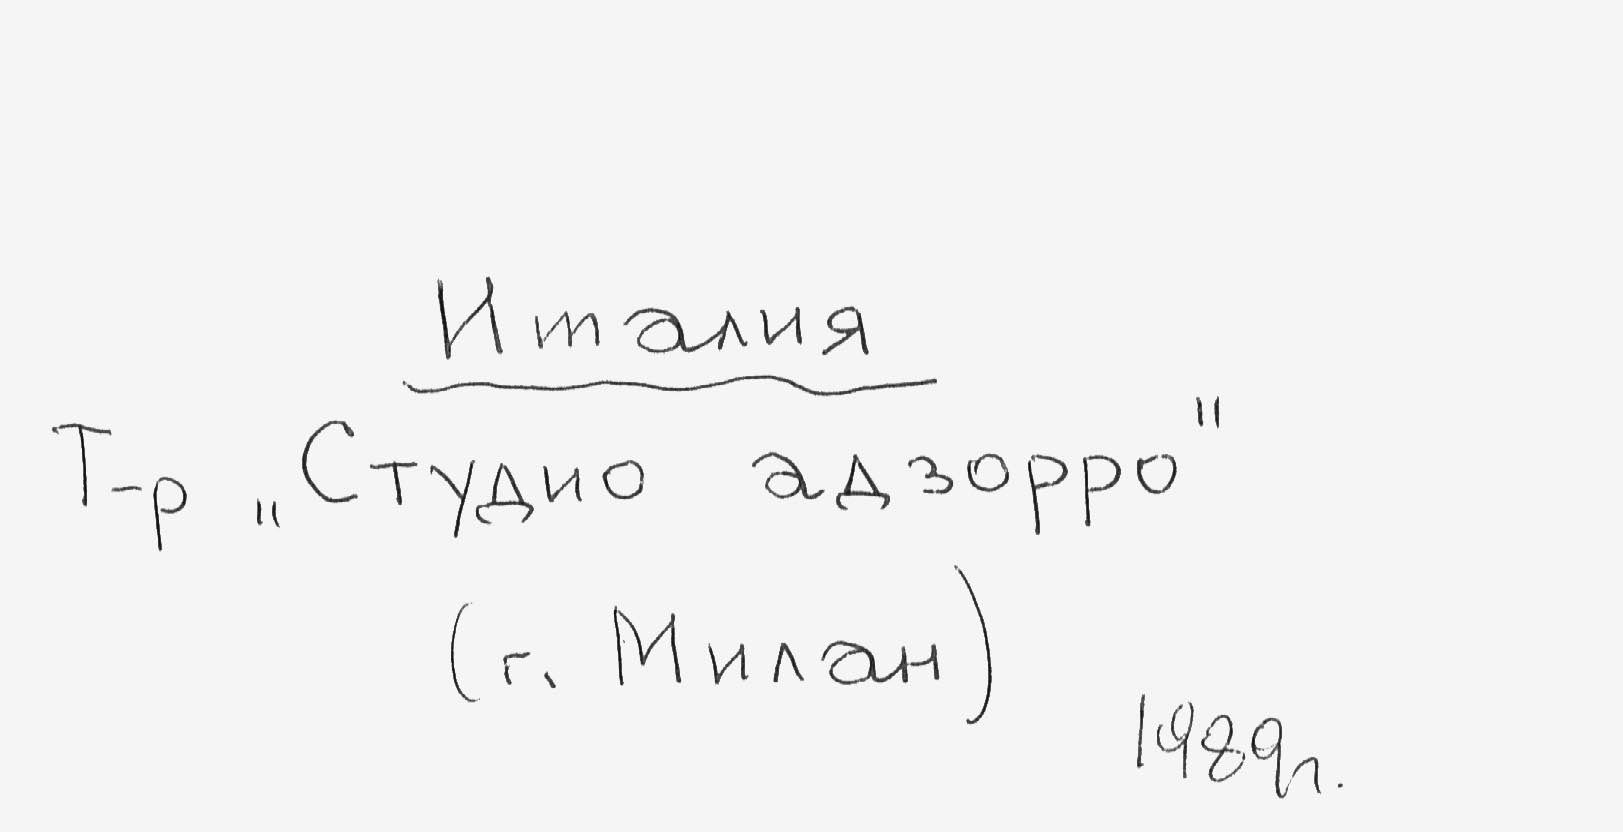 Италия
Т-р „Студио адзорро"
(г. Милан)
1989г.